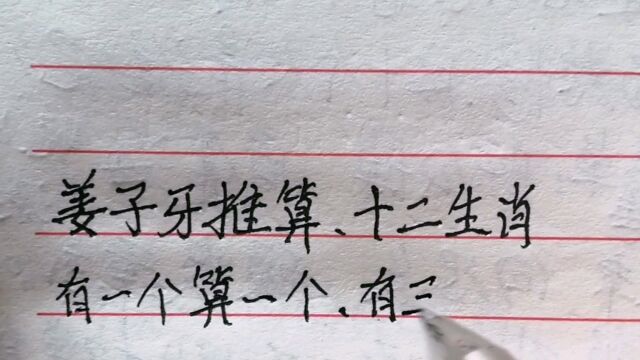 姜子牙推算、十二生肖
有一个算一个、有三